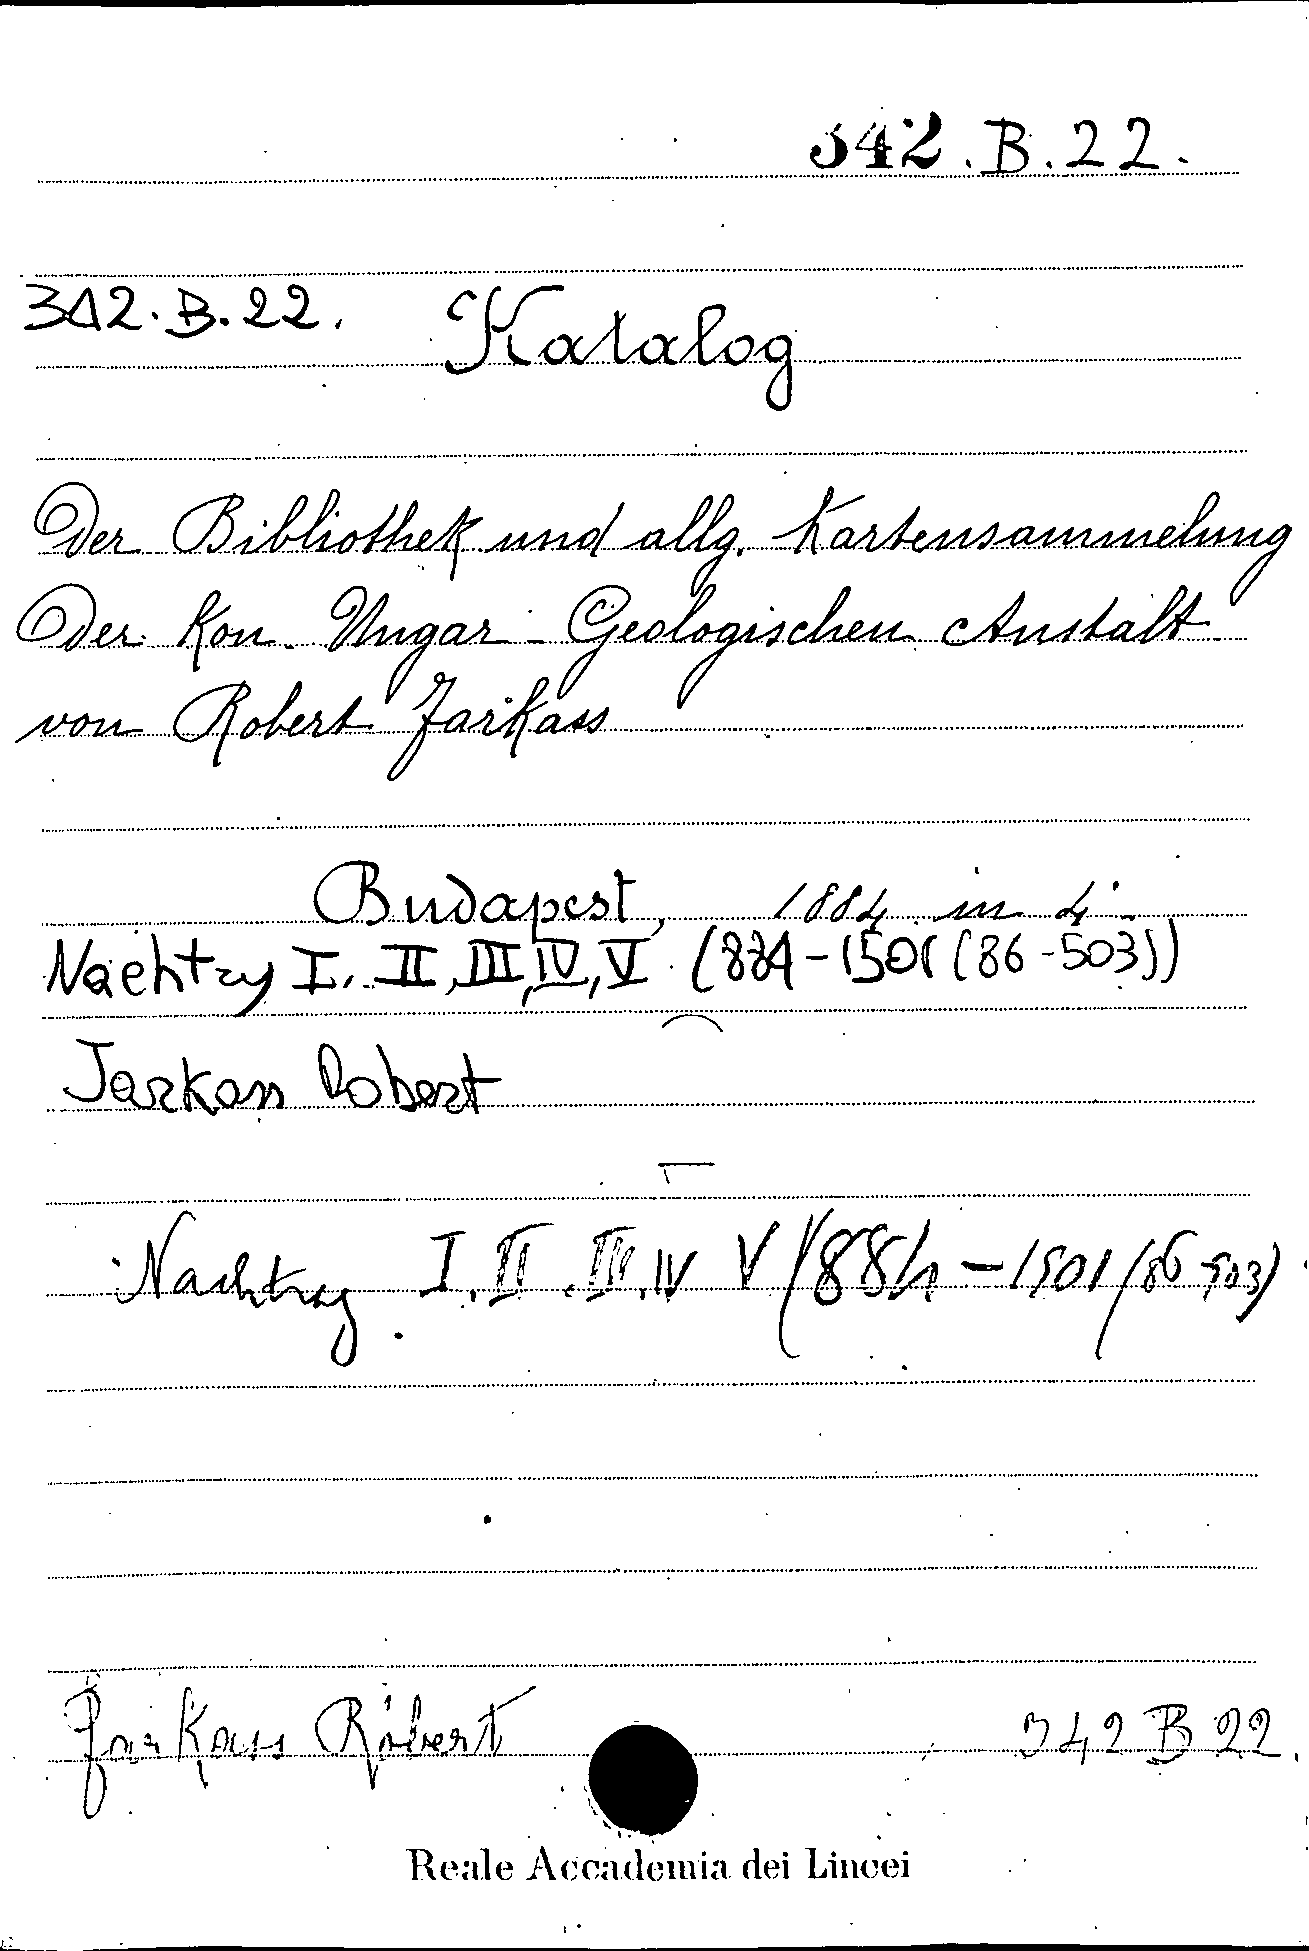 342.B.22.
342.B.22. Katalog
Der Bibliothek und allg. Kartensammelung
Der Kon. Ungar-Geologischen Anstalt
von Robert Farkass
Budapest, 1884 in 4°
Nachtrag I, II, III, IV, V (884-1501 (86-503))
Jarkass Robert
Nachtrag I. II. III. IV V (884-1501 (86-503)
Farkass Robert 342 B 22.
Reale Accademia dei Lincei